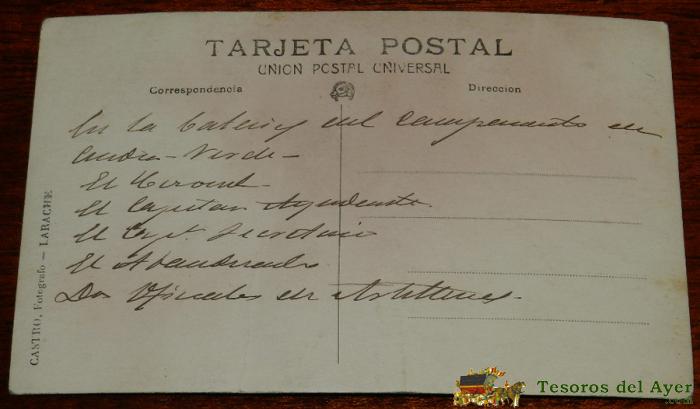 TARJETA POSTAL
UNION POSTAL UNIVERSAL
Correspondencia
Dirección
En la del Campamento de
- Verde -
El
El Capitan Ayudante
El Capt. Secretario
El Abanderado
Dos Oficiales de Artilleria -
CASTRO, Fotógrafo - LARACHE
Tesoros del Ayer
.com